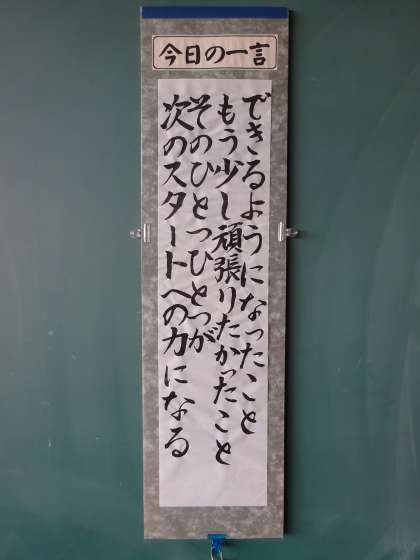 今日の一言
できるようになったこと
もう少し頑張りたかったこと
そのひとつひとつが
次のスタートへの力になる